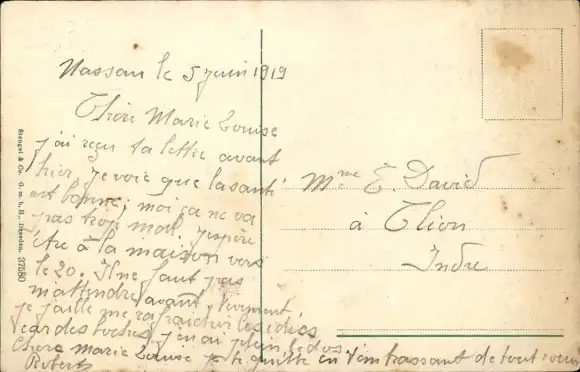 Nassau le 5 juin 1919
Chère Marie Louise
j'ai reçu ta lettre avant
hier, je vois que la santé
est bonne, moi ça ne va
pas trop mal, j'espère
être à la maison vers
le 20. Il ne faut pas
m'attendre avant, vivement
que j'aille me rafraichir les idées
car des boches j'en ai plein le dos
Chère Marie Louise je te quitte en t'embrassant de tout cœur
Robert
Mme E. David
à Clion
Indre
Stengel & Co. G. m. b. H., Dresden. 37580